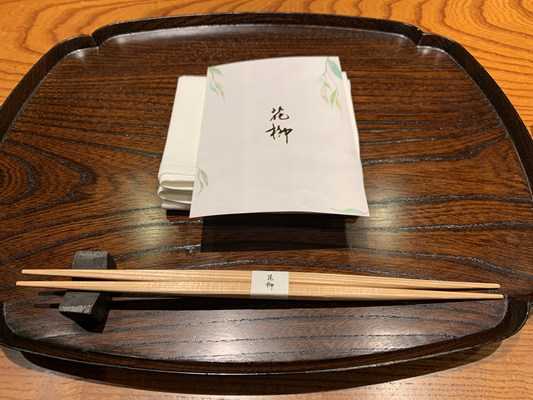 花
柳
花柳